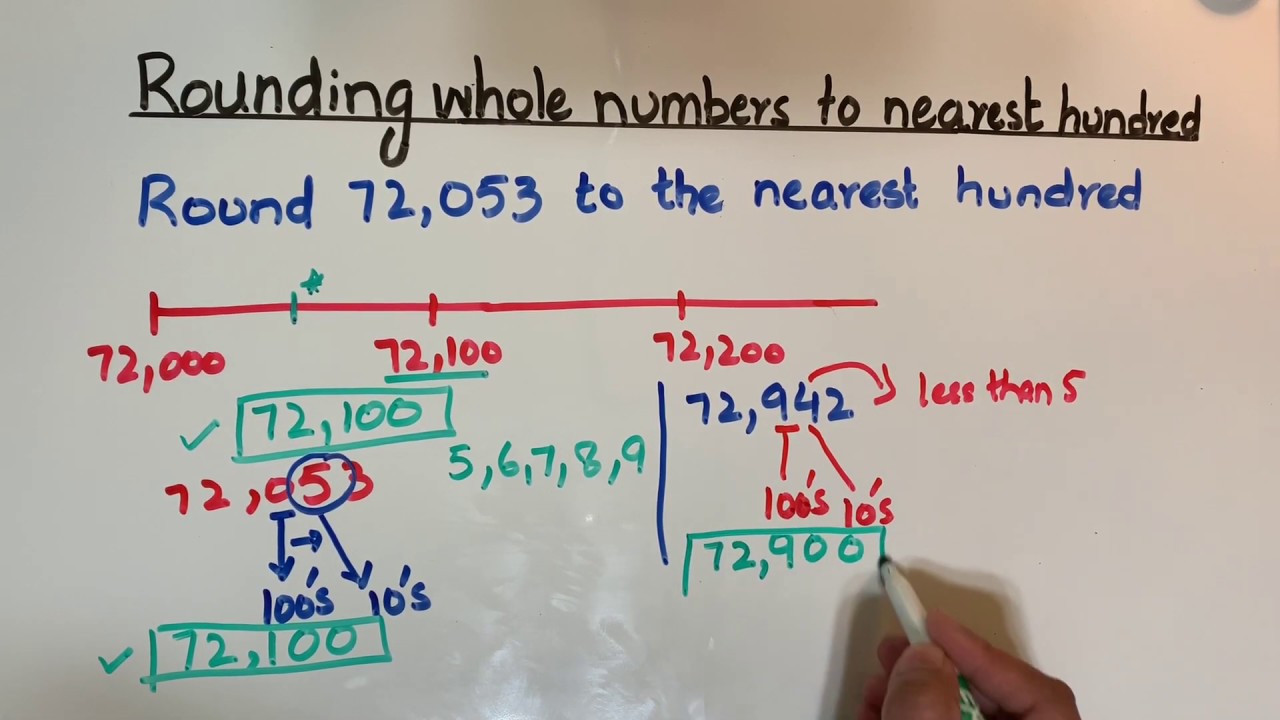 Rounding whole numbers to nearest hundred
Round 72,053 to the nearest hundred
*
72,000 72,100 72,200
✓ 72,100
5,6,7,8,9
72,053
→
100's 10's
✓ 72,100
72,942 less than 5
100's 10's
72,900